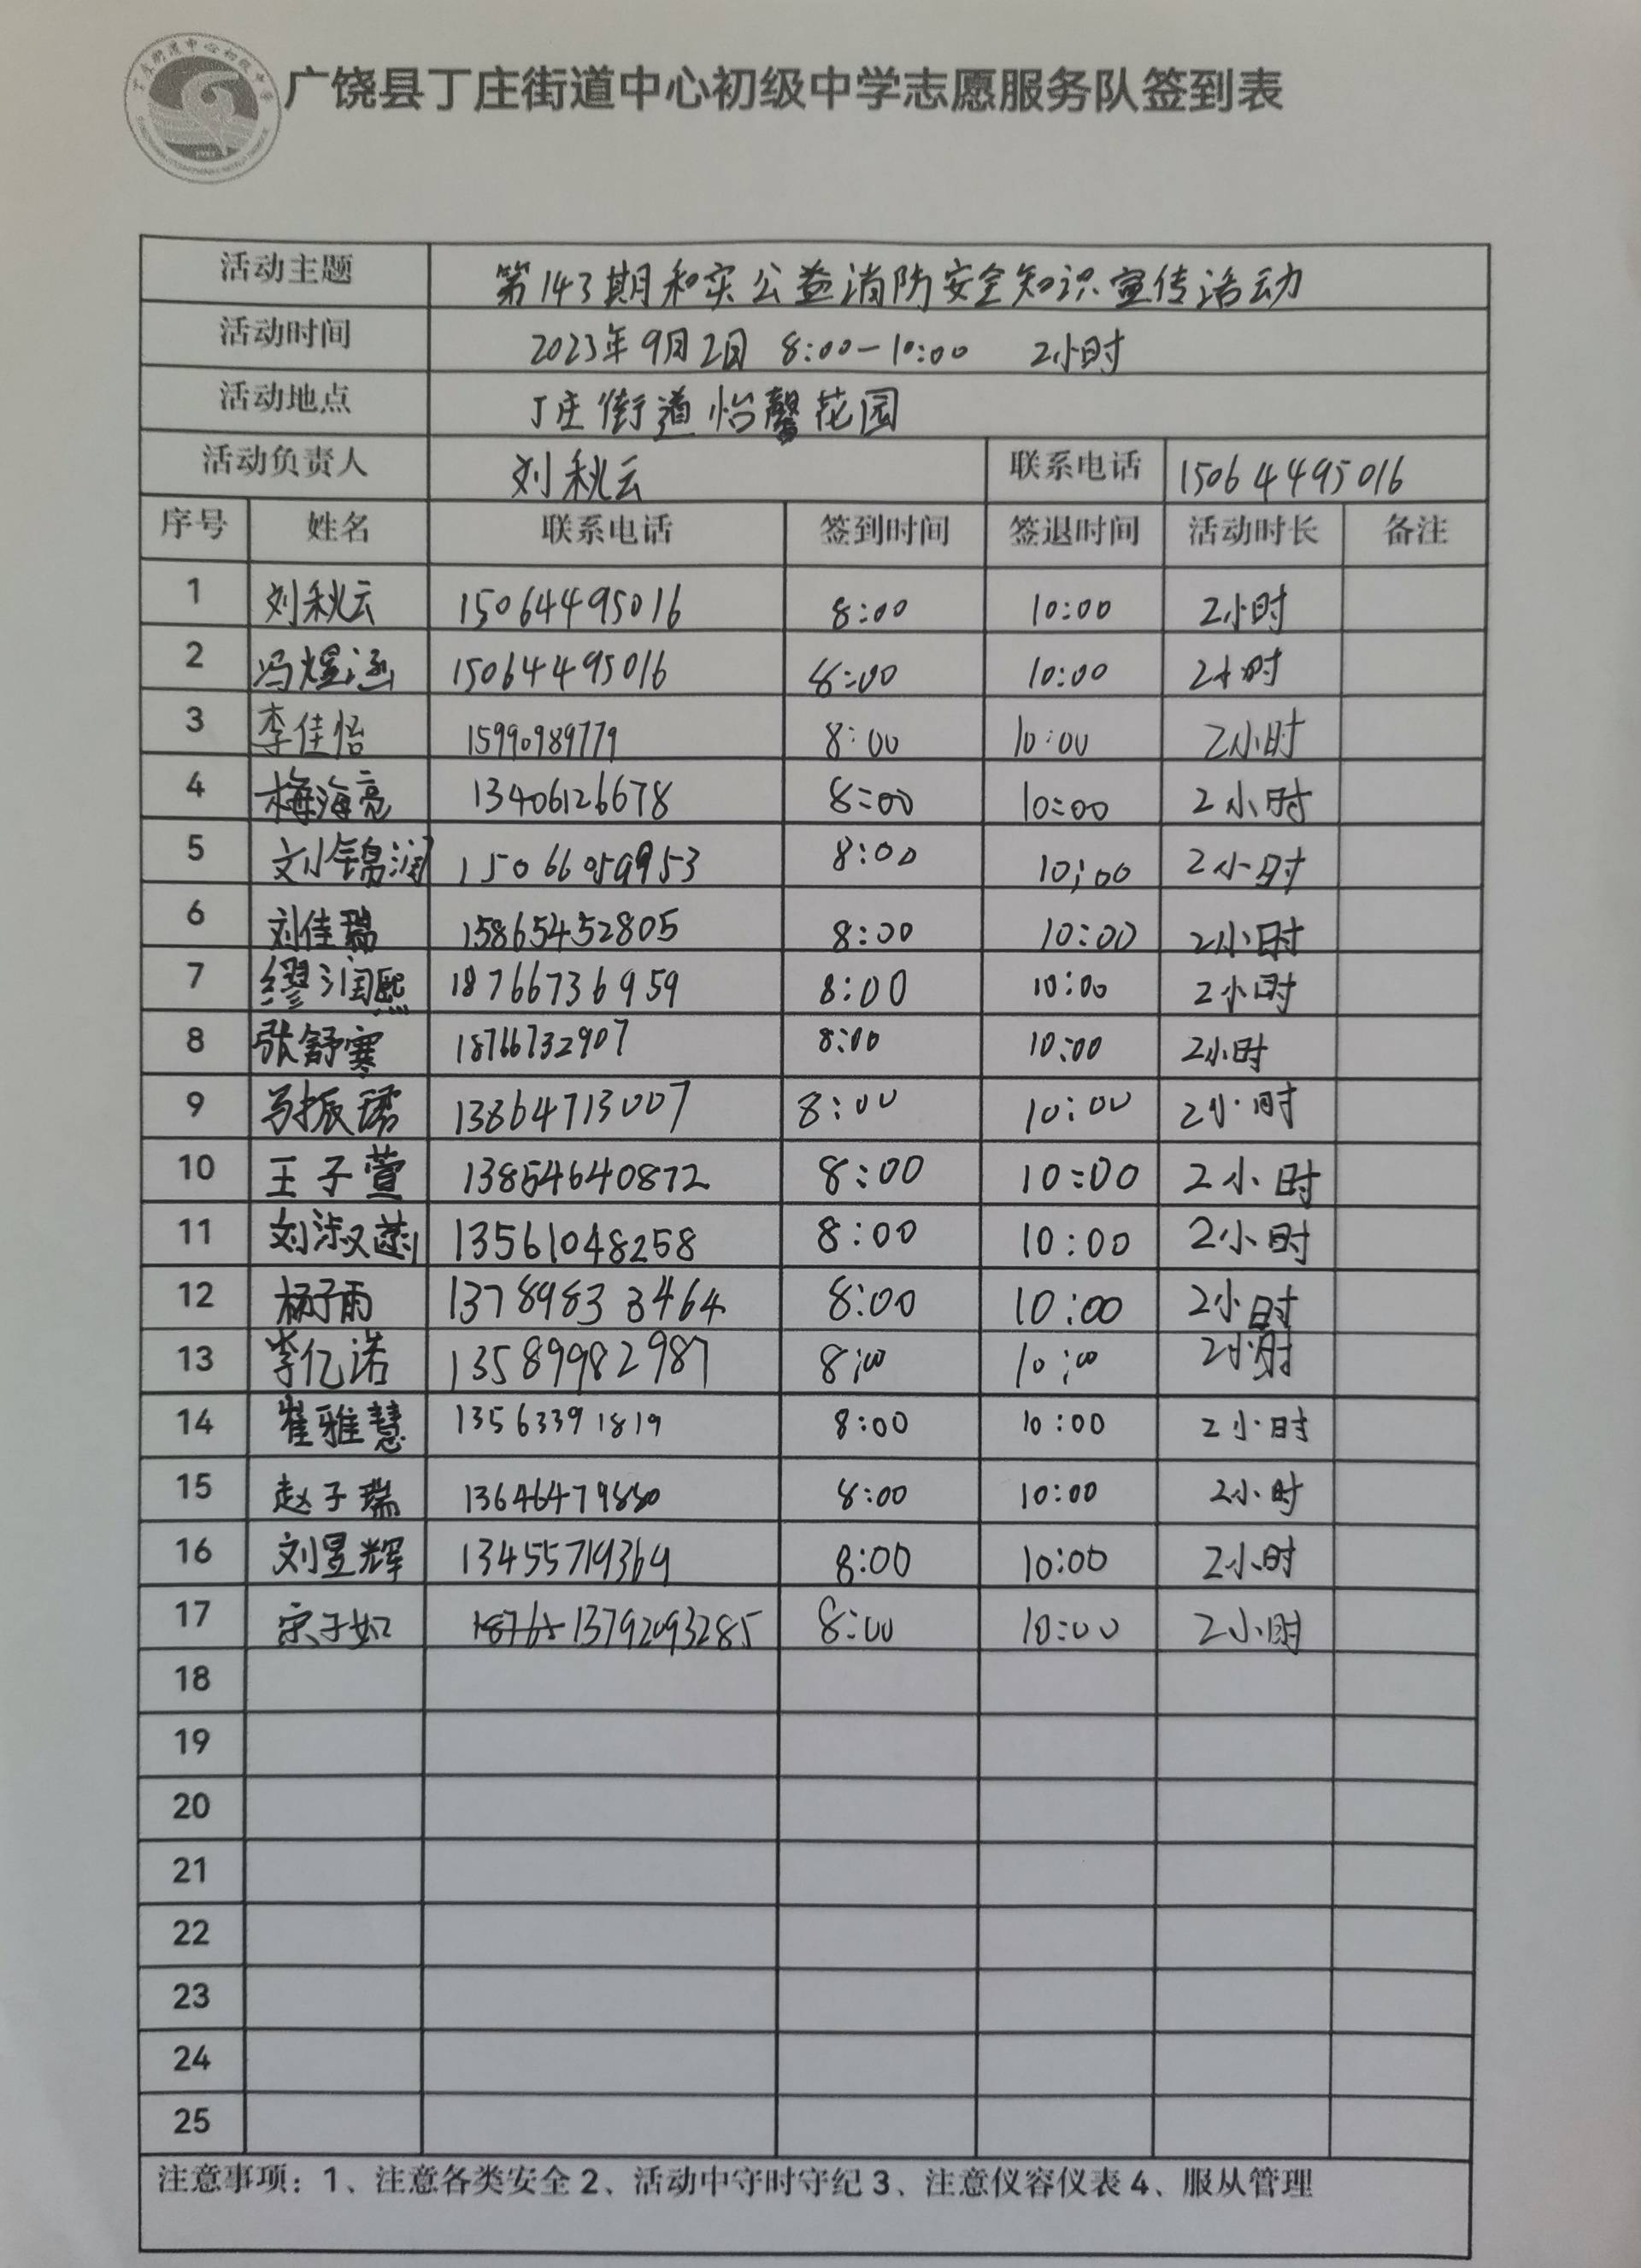 广饶县丁庄街道中心初级中学志愿服务队签到表
活动主题 第143期和实公益消防安全知识宣传活动
活动时间 2023年9月2日 8:00-10:00 2小时
活动地点 丁庄街道怡馨花园
活动负责人 刘秋云 联系电话 15064495016
序号 姓名 联系电话 签到时间 签退时间 活动时长 备注
1 刘秋云 15064495016 8:00 10:00 2小时
2 冯煜涵 15064495016 8:00 10:00 2小时
3 李佳怡 15990989779 8:00 10:00 2小时
4 梅海亮 13406126678 8:00 10:00 2小时
5 刘锦润 15066059953 8:00 10:00 2小时
6 刘佳瑞 15865452805 8:00 10:00 2小时
7 缪润熙 18766736959 8:00 10:00 2小时
8 张舒寒 18766732907 8:00 10:00 2小时
9 马振 13864713007 8:00 10:00 2小时
10 王子萱 13854640872 8:00 10:00 2小时
11 刘淑 13561048258 8:00 10:00 2小时
12 杨子雨 13789833464 8:00 10:00 2小时
13 李亿诺 13589982987 8:00 10:00 2小时
14 崔雅慧 13563391819 8:00 10:00 2小时
15 赵子瑞 13646479880 8:00 10:00 2小时
16 刘昱辉 13455719369 8:00 10:00 2小时
17 宋子如 13792093285 8:00 10:00 2小时
18
19
20
21
22
23
24
25
注意事项：1、注意各类安全 2、活动中守时守纪 3、注意仪容仪表 4、服从管理